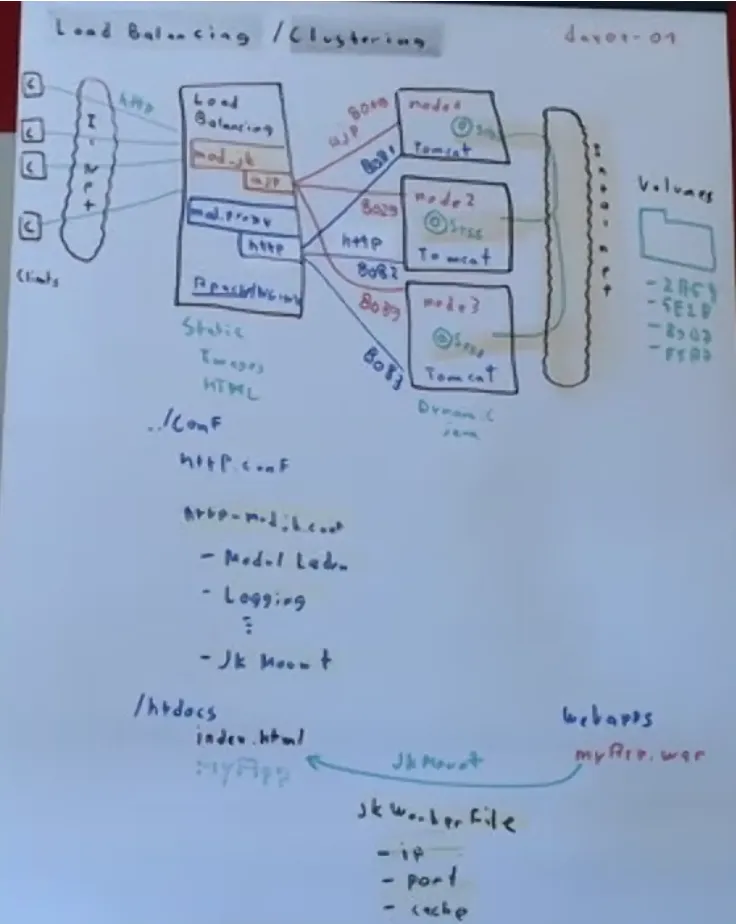 Load Balancing / Clustering
http
Load
Balancing
mod_jk
ajp
mod_proxy
http
8019
ajp
8081
8029
http
8082
8039
8083
node1
Tomcat
node2
Tomcat
node3
Tomcat
Volumes
Clients
Static
Images
HTML
Dynamic
java
../conf
http.conf
http-modjk.conf
- Modul Laden
- Logging
⋮
- Jk Mount
/htdocs
index.html
myApp
webapps
myApp.war
JkMount
JkWorkerFile
- ip
- port
- cache